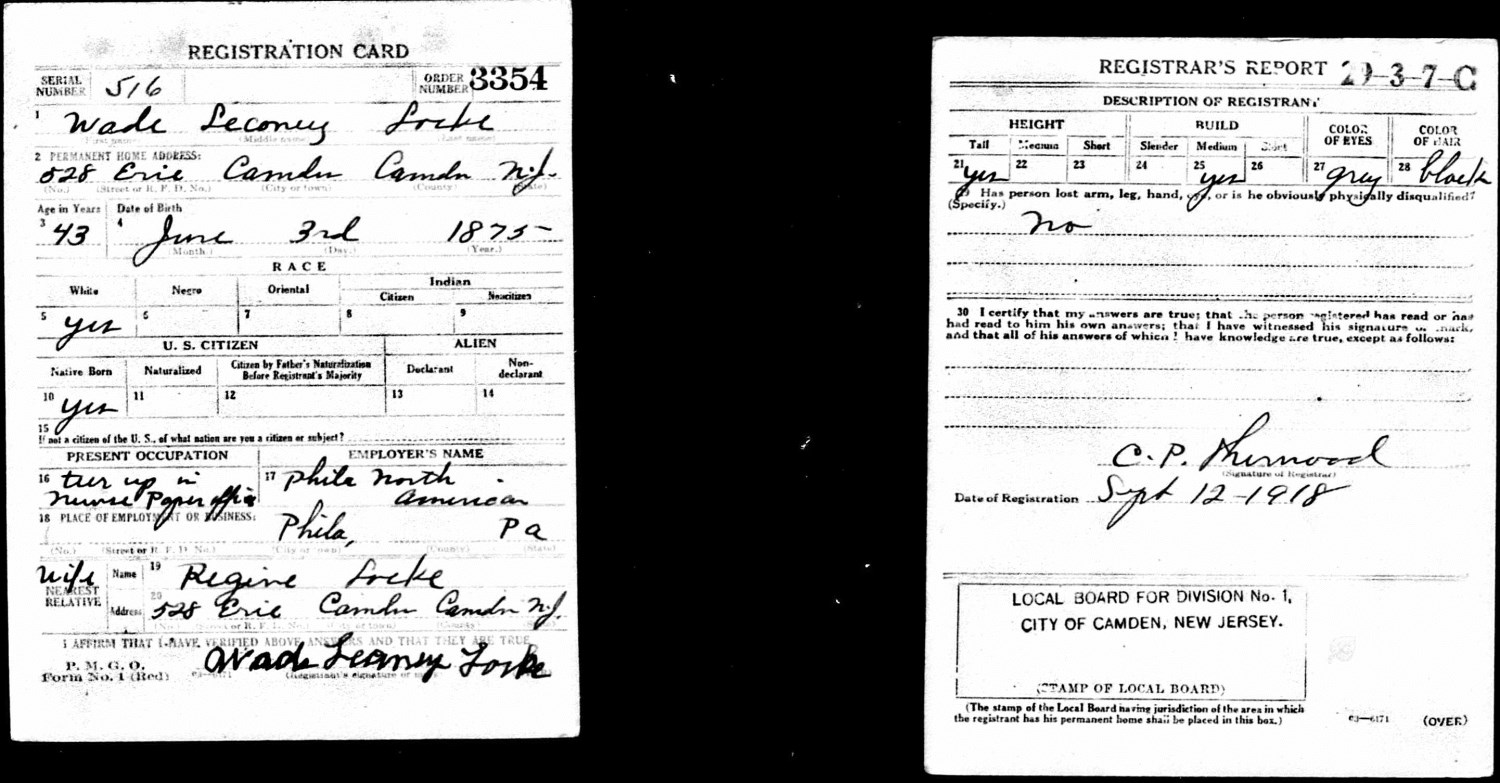 REGISTRATION CARD
SERIAL NUMBER 516 ORDER NUMBER 3354
1 Wade Leconey Locke
(First name) (Middle name) (Last name)
2 PERMANENT HOME ADDRESS:
528 Erie Camden Camden N.J.
(No.) (Street or R. F. D. No.) (City or town) (County) (State)
Age in Years Date of Birth
3 43 4 June 3rd 1875
(Month.) (Day.) (Year.)
RACE
White Negro Oriental Indian
Citizen Noncitizen
5 yes 6 7 8 9
U. S. CITIZEN ALIEN
Native Born Naturalized Citizen by Father's Naturalization Before Registrant's Majority Declarant Non-declarant
10 yes 11 12 13 14
15
If not a citizen of the U. S., of what nation are you a citizen or subject?
PRESENT OCCUPATION EMPLOYER'S NAME
16 tier up in 17 Phila North
Newse Paper office American
18 PLACE OF EMPLOYMENT OR BUSINESS:
Phila, Pa
(No.) (Street or R. F. D. No.) (City or town) (County) (State)
Wife Name 19 Regine Locke
NEAREST RELATIVE
Address 20 528 Erie Camden Camden N.J.
(No.) (Street or R. F. D. No.) (City or town) (County) (State)
I AFFIRM THAT I HAVE VERIFIED ABOVE ANSWERS AND THAT THEY ARE TRUE
P. M. G. O.
Form No. 1 (Red) c3—6171 Wade Leconey Locke
(Registrant's signature or mark)
REGISTRAR'S REPORT 29-3-7-C
DESCRIPTION OF REGISTRANT
HEIGHT BUILD COLOR OF EYES COLOR OF HAIR
Tall Medium Short Slender Medium Stout
21 yes 22 23 24 25 yes 26 27 gray 28 black
29 Has person lost arm, leg, hand, eye, or is he obviously physically disqualified?
(Specify.)
no
30 I certify that my answers are true; that the person registered has read or has
had read to him his own answers; that I have witnessed his signature or mark,
and that all of his answers of which I have knowledge are true, except as follows:
C. P. Sherwood
(Signature of Registrar)
Date of Registration Sept 12-1918
LOCAL BOARD FOR DIVISION No. 1,
CITY OF CAMDEN, NEW JERSEY.
(STAMP OF LOCAL BOARD)
(The stamp of the Local Board having jurisdiction of the area in which
the registrant has his permanent home shall be placed in this box.)
c3—6171 (OVER)